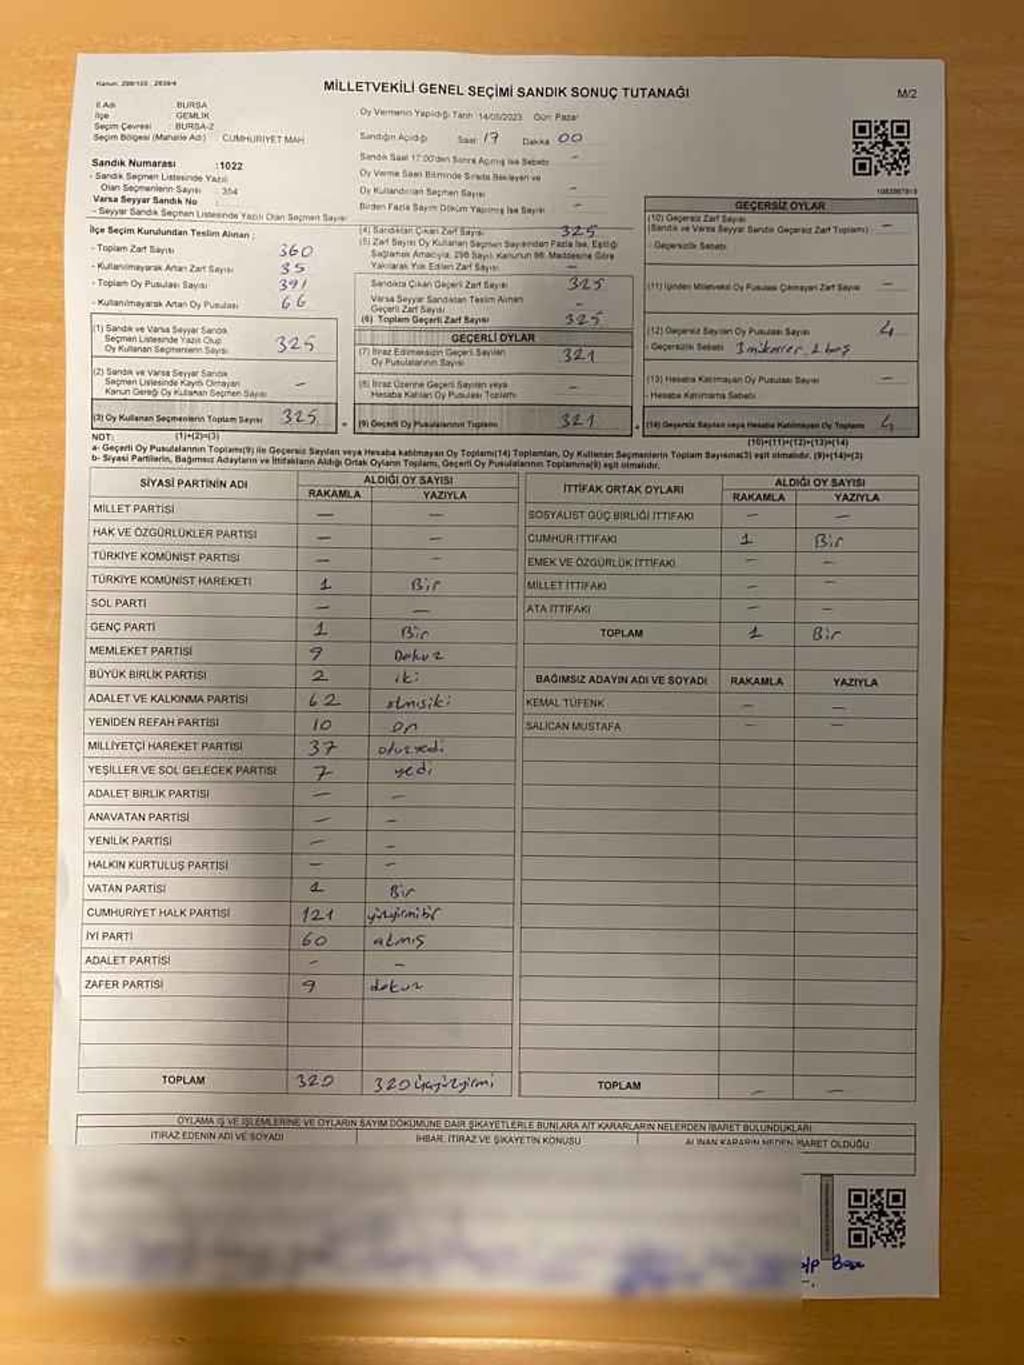 Kanun: 298/105 : 2839/4
MİLLETVEKİLİ GENEL SEÇİMİ SANDIK SONUÇ TUTANAĞI
M/2
İl Adı BURSA
İlçe GEMLİK
Seçim Çevresi : BURSA-2
Seçim Bölgesi (Mahalle Adı) CUMHURİYET MAH
Oy Vermenin Yapıldığı Tarih 14/05/2023 Gün: Pazar
Sandığın Açıldığı Saat: 17 Dakika 00
Sandık Saat 17:00'den Sonra Açılmış İse Sebebi -
Oy Verme Saati Bitiminde Sırada Bekleyen ve
Oy Kullandırılan Seçmen Sayısı -
Birden Fazla Sayım Döküm Yapılmış İse Sayısı -
Sandık Numarası :1022
- Sandık Seçmen Listesinde Yazılı
Olan Seçmenlerin Sayısı : 354
Varsa Seyyar Sandık No
- Seyyar Sandık Seçmen Listesinde Yazılı Olan Seçmen Sayısı
İlçe Seçim Kurulundan Teslim Alınan :
- Toplam Zarf Sayısı 360
- Kullanılmayarak Artan Zarf Sayısı 35
- Toplam Oy Pusulası Sayısı 391
- Kullanılmayarak Artan Oy Pusulası 66
(1) Sandık ve Varsa Seyyar Sandık
Seçmen Listesinde Yazılı Olup
Oy Kullanan Seçmenlerin Sayısı 325
(2) Sandık ve Varsa Seyyar Sandık
Seçmen Listesinde Kayıtlı Olmayan
Kanun Gereği Oy Kullanan Seçmen Sayısı -
(3) Oy Kullanan Seçmenlerin Toplam Sayısı 325
(1)+(2)=(3)
(4) Sandıktan Çıkan Zarf Sayısı 325
(5) Zarf Sayısı Oy Kullanan Seçmen Sayısından Fazla İse, Eşitliği
Sağlamak Amacıyla, 298 Sayılı Kanunun 98. Maddesine Göre
Yakılarak Yok Edilen Zarf Sayısı -
Sandıkta Çıkan Geçerli Zarf Sayısı 325
Varsa Seyyar Sandıktan Teslim Alınan
Geçerli Zarf Sayısı -
(6) Toplam Geçerli Zarf Sayısı 325
GEÇERLİ OYLAR
(7) İtiraz Edilmeksizin Geçerli Sayılan
Oy Pusulalarının Sayısı 321
(8) İtiraz Üzerine Geçerli Sayılan veya
Hesaba Katılan Oy Pusulası Toplamı -
(9) Geçerli Oy Pusulalarının Toplamı 321
GEÇERSİZ OYLAR
(10) Geçersiz Zarf Sayısı
(Sandık ve Varsa Seyyar Sandık Geçersiz Zarf Toplamı) -
- Geçersizlik Sebebi
(11) İçinden Milletvekili Oy Pusulası Çıkmayan Zarf Sayısı -
(12) Geçersiz Sayılan Oy Pusulası Sayısı 4
- Geçersizlik Sebebi 3 mükerrer 1 boş
(13) Hesaba Katılmayan Oy Pusulası Sayısı -
- Hesaba Katılmama Sebebi
(14) Geçersiz Sayılan veya Hesaba Katılmayan Oy Toplamı 4
(10)+(11)+(12)+(13)=(14)
NOT:
a- Geçerli Oy Pusulalarının Toplamı(9) ile Geçersiz Sayılan veya Hesaba katılmayan Oy Toplamı(14) Toplamları, Oy Kullanan Seçmenlerin Toplam Sayısına(3) eşit olmalıdır. (9)+(14)=(3)
b- Siyasi Partilerin, Bağımsız Adayların ve İttifakların Aldığı Ortak Oyların Toplamı, Geçerli Oy Pusulalarının Toplamına(9) eşit olmalıdır.
SİYASİ PARTİNİN ADI ALDIĞI OY SAYISI
RAKAMLA YAZIYLA
MİLLET PARTİSİ - -
HAK VE ÖZGÜRLÜKLER PARTİSİ - -
TÜRKİYE KOMÜNİST PARTİSİ - -
TÜRKİYE KOMÜNİST HAREKETİ 1 Bir
SOL PARTİ - -
GENÇ PARTİ 1 Bir
MEMLEKET PARTİSİ 9 Dokuz
BÜYÜK BİRLİK PARTİSİ 2 iki
ADALET VE KALKINMA PARTİSİ 62 atmışiki
YENİDEN REFAH PARTİSİ 10 on
MİLLİYETÇİ HAREKET PARTİSİ 37 otuzyedi
YEŞİLLER VE SOL GELECEK PARTİSİ 7 yedi
ADALET BİRLİK PARTİSİ - -
ANAVATAN PARTİSİ - -
YENİLİK PARTİSİ - -
HALKIN KURTULUŞ PARTİSİ - -
VATAN PARTİSİ 1 Bir
CUMHURİYET HALK PARTİSİ 121 yüzyirmibir
İYİ PARTİ 60 atmış
ADALET PARTİSİ - -
ZAFER PARTİSİ 9 dokuz
TOPLAM 320 320 üçyüzyirmi
İTTİFAK ORTAK OYLARI ALDIĞI OY SAYISI
RAKAMLA YAZIYLA
SOSYALİST GÜÇ BİRLİĞİ İTTİFAKI - -
CUMHUR İTTİFAKI 1 Bir
EMEK VE ÖZGÜRLÜK İTTİFAKI - -
MİLLET İTTİFAKI - -
ATA İTTİFAKI - -
TOPLAM 1 Bir
BAĞIMSIZ ADAYIN ADI VE SOYADI RAKAMLA YAZIYLA
KEMAL TÜFENK - -
SALİCAN MUSTAFA - -
TOPLAM - -
OYLAMA İŞ VE İŞLEMLERİNE VE OYLARIN SAYIM DÖKÜMÜNE DAİR ŞİKAYETLERLE BUNLARA AİT KARARLARIN NELERDEN İBARET BULUNDUKLARI
İTİRAZ EDENİN ADI VE SOYADI İHBAR, İTİRAZ VE ŞİKAYETİN KONUSU ALINAN KARARIN NEDEN İBARET OLDUĞU